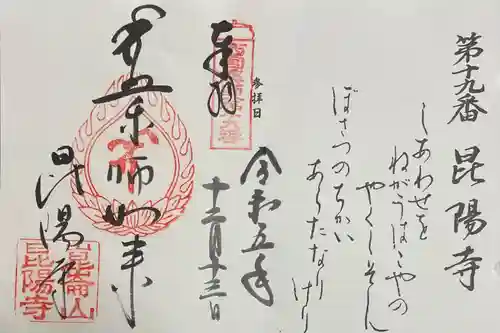 第十九番 昆陽寺
しあわせを
ねがうはこやの
やくしそん
ぼさつのちかい
あらたなり
けり
奉拝
参拝日
令和五年
十二月十三日
薬師如来
昆陽寺
崑崙山
昆陽寺